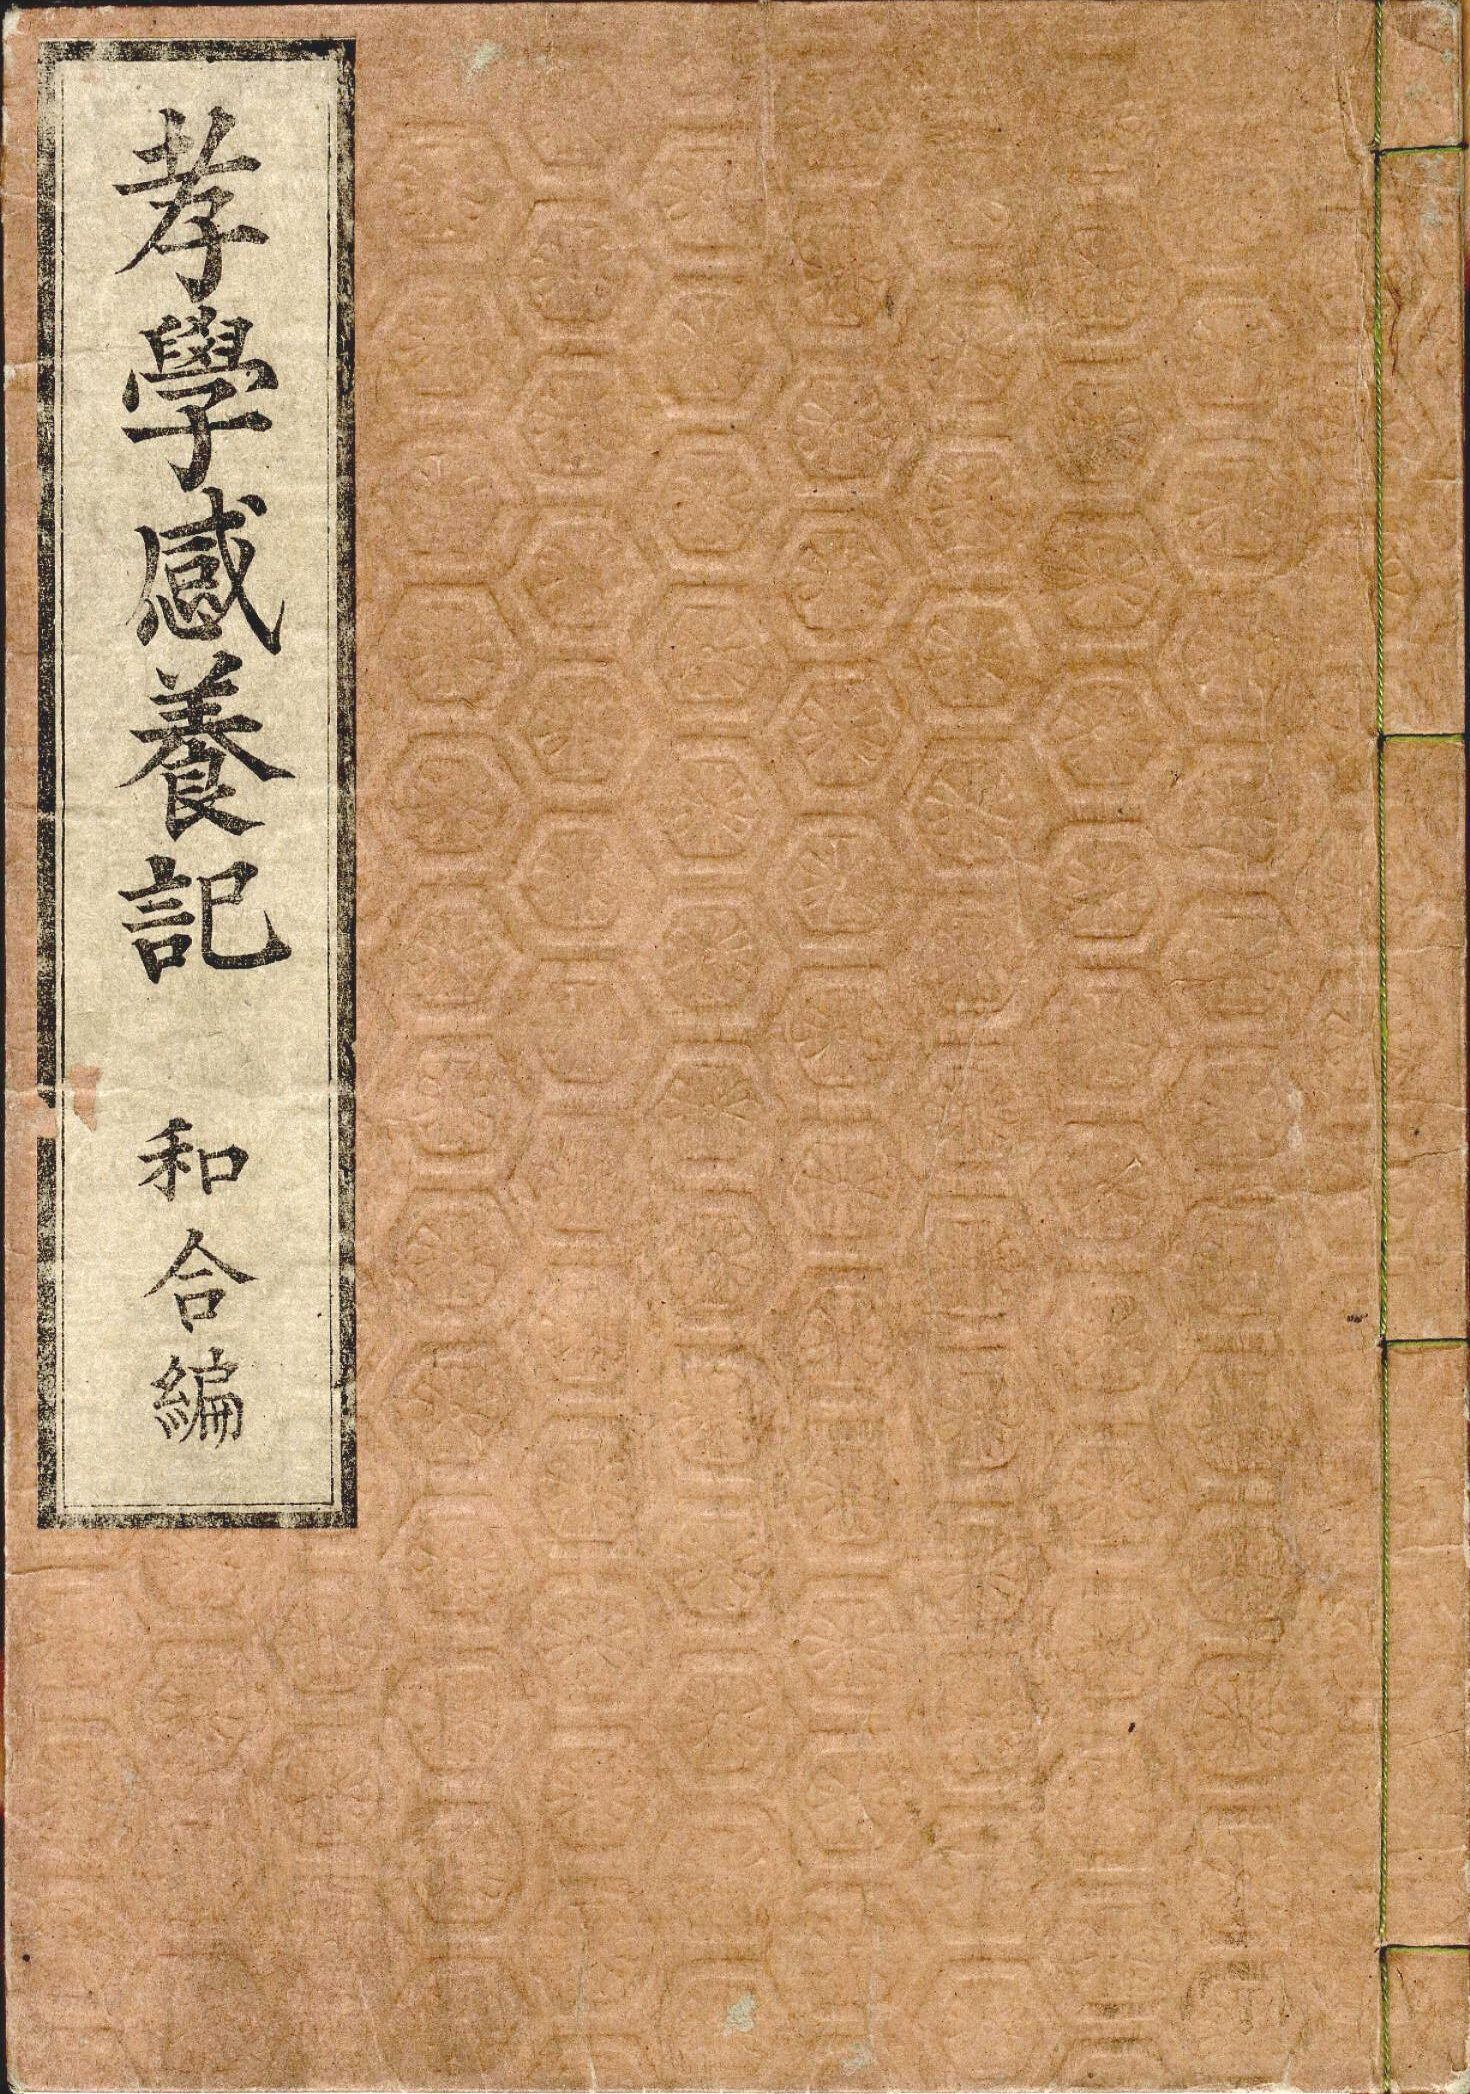 孝學感養記 和合編